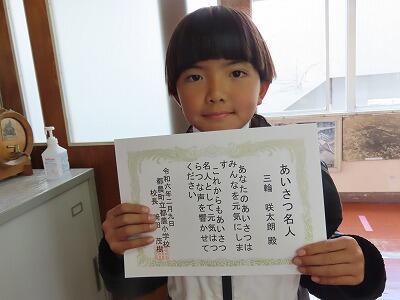 あいさつ名人
三輪 咲太朗 殿
あなたのあいさつは
みんなを元気にしま
す
これからもあいさつ
名人として元気はつ
らつな声を響かせて
ください
令和六年二月九日
御嵩町立上之郷小学校
校長
茂樹